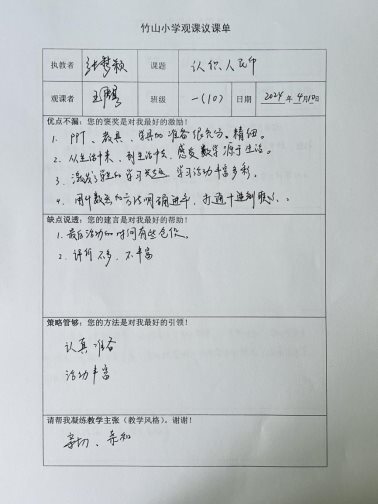 竹山小学观课议课单
执教者 张梦颖 课题 认识人民币
观课者 班级 一(10) 日期 2024年4月10日
优点不漏：您的褒奖是对我最好的激励！
1. PPT、教具、学具的准备很充分。精细。
2. 从生活中来，到生活中去，感受数学源于生活。
3. 激发了学生的学习兴趣，学习活动丰富多彩。
4. 用数的方法明确进率，
缺点说透：您的建言是对我最好的帮助！
1. 最后活动的时间有些仓促。
2. 评价不多，不丰富
策略管够：您的方法是对我最好的引领！
认真准备
活动丰富
请帮我凝练教学主张（教学风格），谢谢！
亲切、亲和